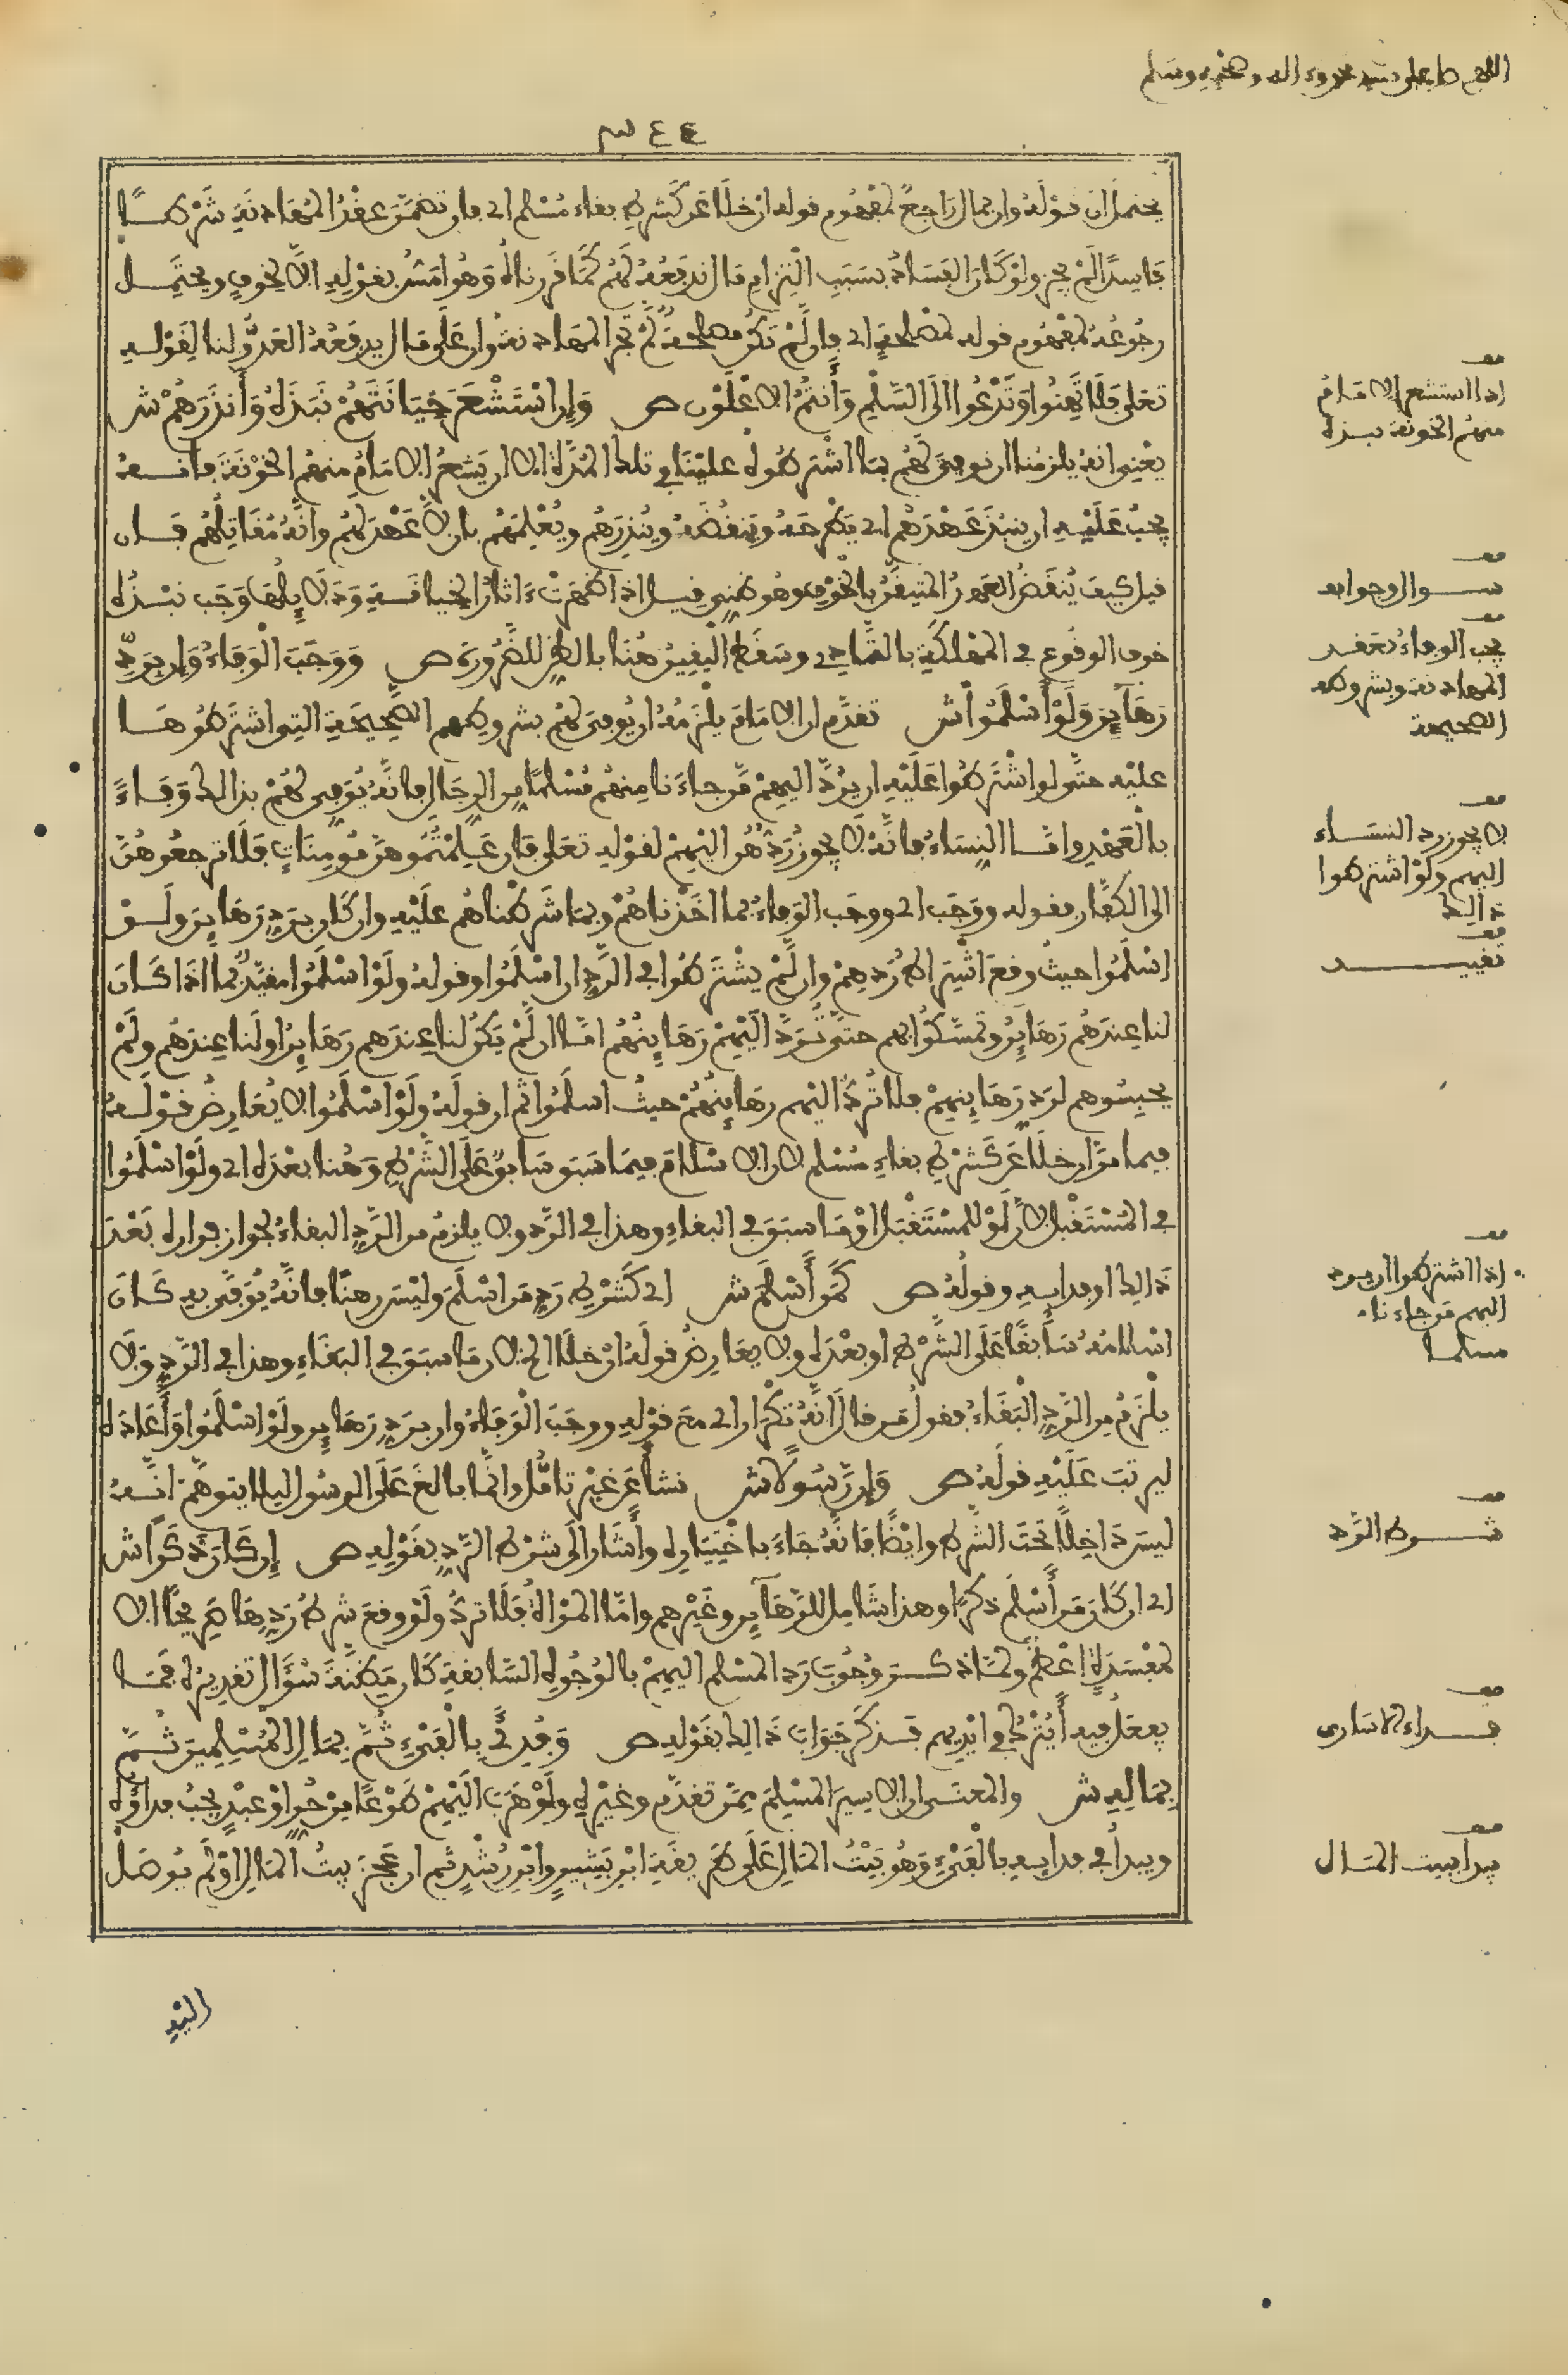 اللهم صل على سيدنا محمد وءاله وصحبه وسلم
٣٤٤
يحتمل ان قوله وان بمال راجع لمفهوم قوله ان خلا عن كشرط بقاء مسلم اي فان تضمن عقد المهادنة شرطا
فاسدا لم يجز ولو كان الفساد بسبب التزام مال ندفعه لهم كما قررناه وهو امش بقوله الا لخوف ويحتمل
رجوعه لمفهوم قوله لمصلحة اي فان لم تكن مصلحة لم تجز المهادنة وان على مال يدفعه العدو لنا لقوله
تعلى فلا تهنوا وتدعوا الى السلم وأنتم الاعلون ص وإن استشعر خيانتهم نبذه وأنذرهم ش
يعني انه يلزمنا ان نوفي لهم بما اشترطوه علينا في تلك المدة الا ان يشعر الامام منهم الخونة فانه
يجب عليه ان ينبذ عهدهم اي يطرحه وينقضه وينذرهم ويعلمهم بان لا عهد لهم وانه مقاتلهم فان
قيل كيف ينقض العهد المتيقن بالخوف وهو ظني قيل اذا ظهرت ءاثار الخيانة ودلائلها وجب نبذه
خوف الوقوع في المهلكة بالتمادي وسقط اليقين هنا بالظن للضرورة ص ووجب الوفاء وإن برد
رهآئن ولو أسلموا ش تقدم ان الامام يلزمه ان يوفي لهم بشروطهم الصحيحة التي اشترطوها
عليه حتى لو اشترطوا عليه ان يرد اليهم من جاءنا منهم مسلما من الرجال فانه يوفي لهم بذالك وفاء
بالعهد واما النساء فانه لا يجوز ردهن اليهم لقوله تعلى فان علمتموهن مومنات فلا ترجعوهن
الى الكفار فقوله ووجب اي ووجب الوفاء بما اخذناهم وبما شرطناهم عليه وان كان برد رهاين ولو
اسلموا حيث وقع اشتراط ردهم وان لم يشترطوا في الرد ان اسلموا وقوله ولو اسلموا مقيد بما اذا كان
لنا عندهم رهاين وتمسكوا بهم حتى نرد اليهم رهاينهم اما ان لم يكن لنا عندهم رهاين او لنا عندهم ولم
يحبسوهم لرد رهاينهم فلا ترد اليهم رهاينهم حيث اسلموا ثم ان قوله ولو اسلموا لا يعارض قوله
فيما مر ان خلا عن كشرط بقاء مسلم لان الاسلام فيما سبق سابق على الشرط وهنا بعده اي ولو اسلموا
في المستقبل لان لو للمستقبل او ما سبق في البقاء وهذا في الرد ولا يلزم من الرد البقاء لجواز فراره بعد
ذالك او فدايه وقوله ص كمن أسلم ش اي كشرط رد من اسلم وليس رهنا فانه يوفى به كان
اسلامه سابقا على الشرط او بعده ولا يعارض قوله ان خلا الخ لان ما سبق في البقاء وهذا في الرد ولا
يلزم من الرد البقاء فقول من قال انه تكرار اي مع قوله ووجب الوفاء وان برد رهاين ولو اسلموا وأعاده
ليرتب عليه قوله ص وإن رسولا ش نشأ عن غير تامل وانما بالغ على الرسول ليلا يتوهم انه
ليس داخلا تحت الشرط وايضا فانه جاء باختياره وأشار الى شرط الرد بقوله ص إن كان ذكرا ش
اي ان كان من أسلم ذكرا وهذا شامل للرهآين وغيرهم واما المرأة فلا ترد ولو وقع شرط ردها صريحا الا
لمفسدة اعظم ولما ذكر وجوب رد المسلم اليهم بالوجوه السابقة كان مظنة سؤال تقديره فما
يفعل فيه أيترك في ايديهم فذكر جواب ذالك بقوله ص وفدي بالفيء ثم بمال المسلمين ثم
بماله ش والمعنى ان الاسير المسلم ممن تقدم وغيره ولو هرب اليهم طوعا من حر او عبد يجب فداؤه
ويبدأ في فدايه بالفيء وهو بيت المال على طريقة ابن بشير وابن رشد ثم ان عجز بيت المال او لم يوصل
اليه
اذا استشعر الامام
منهم الخونة نبذه
سوال وجوابه
يجب الوفاء بعقد
المهادنة وبشروطه
الصحيحة
لا يجوز رد النساء
اليهم ولو اشترطوا
ذالك
تقييد
اذا اشترطوا ان يرد
اليهم من جاءنا
مسلما
شرط الرد
فداء الاسارى
يبدا ببيت المال